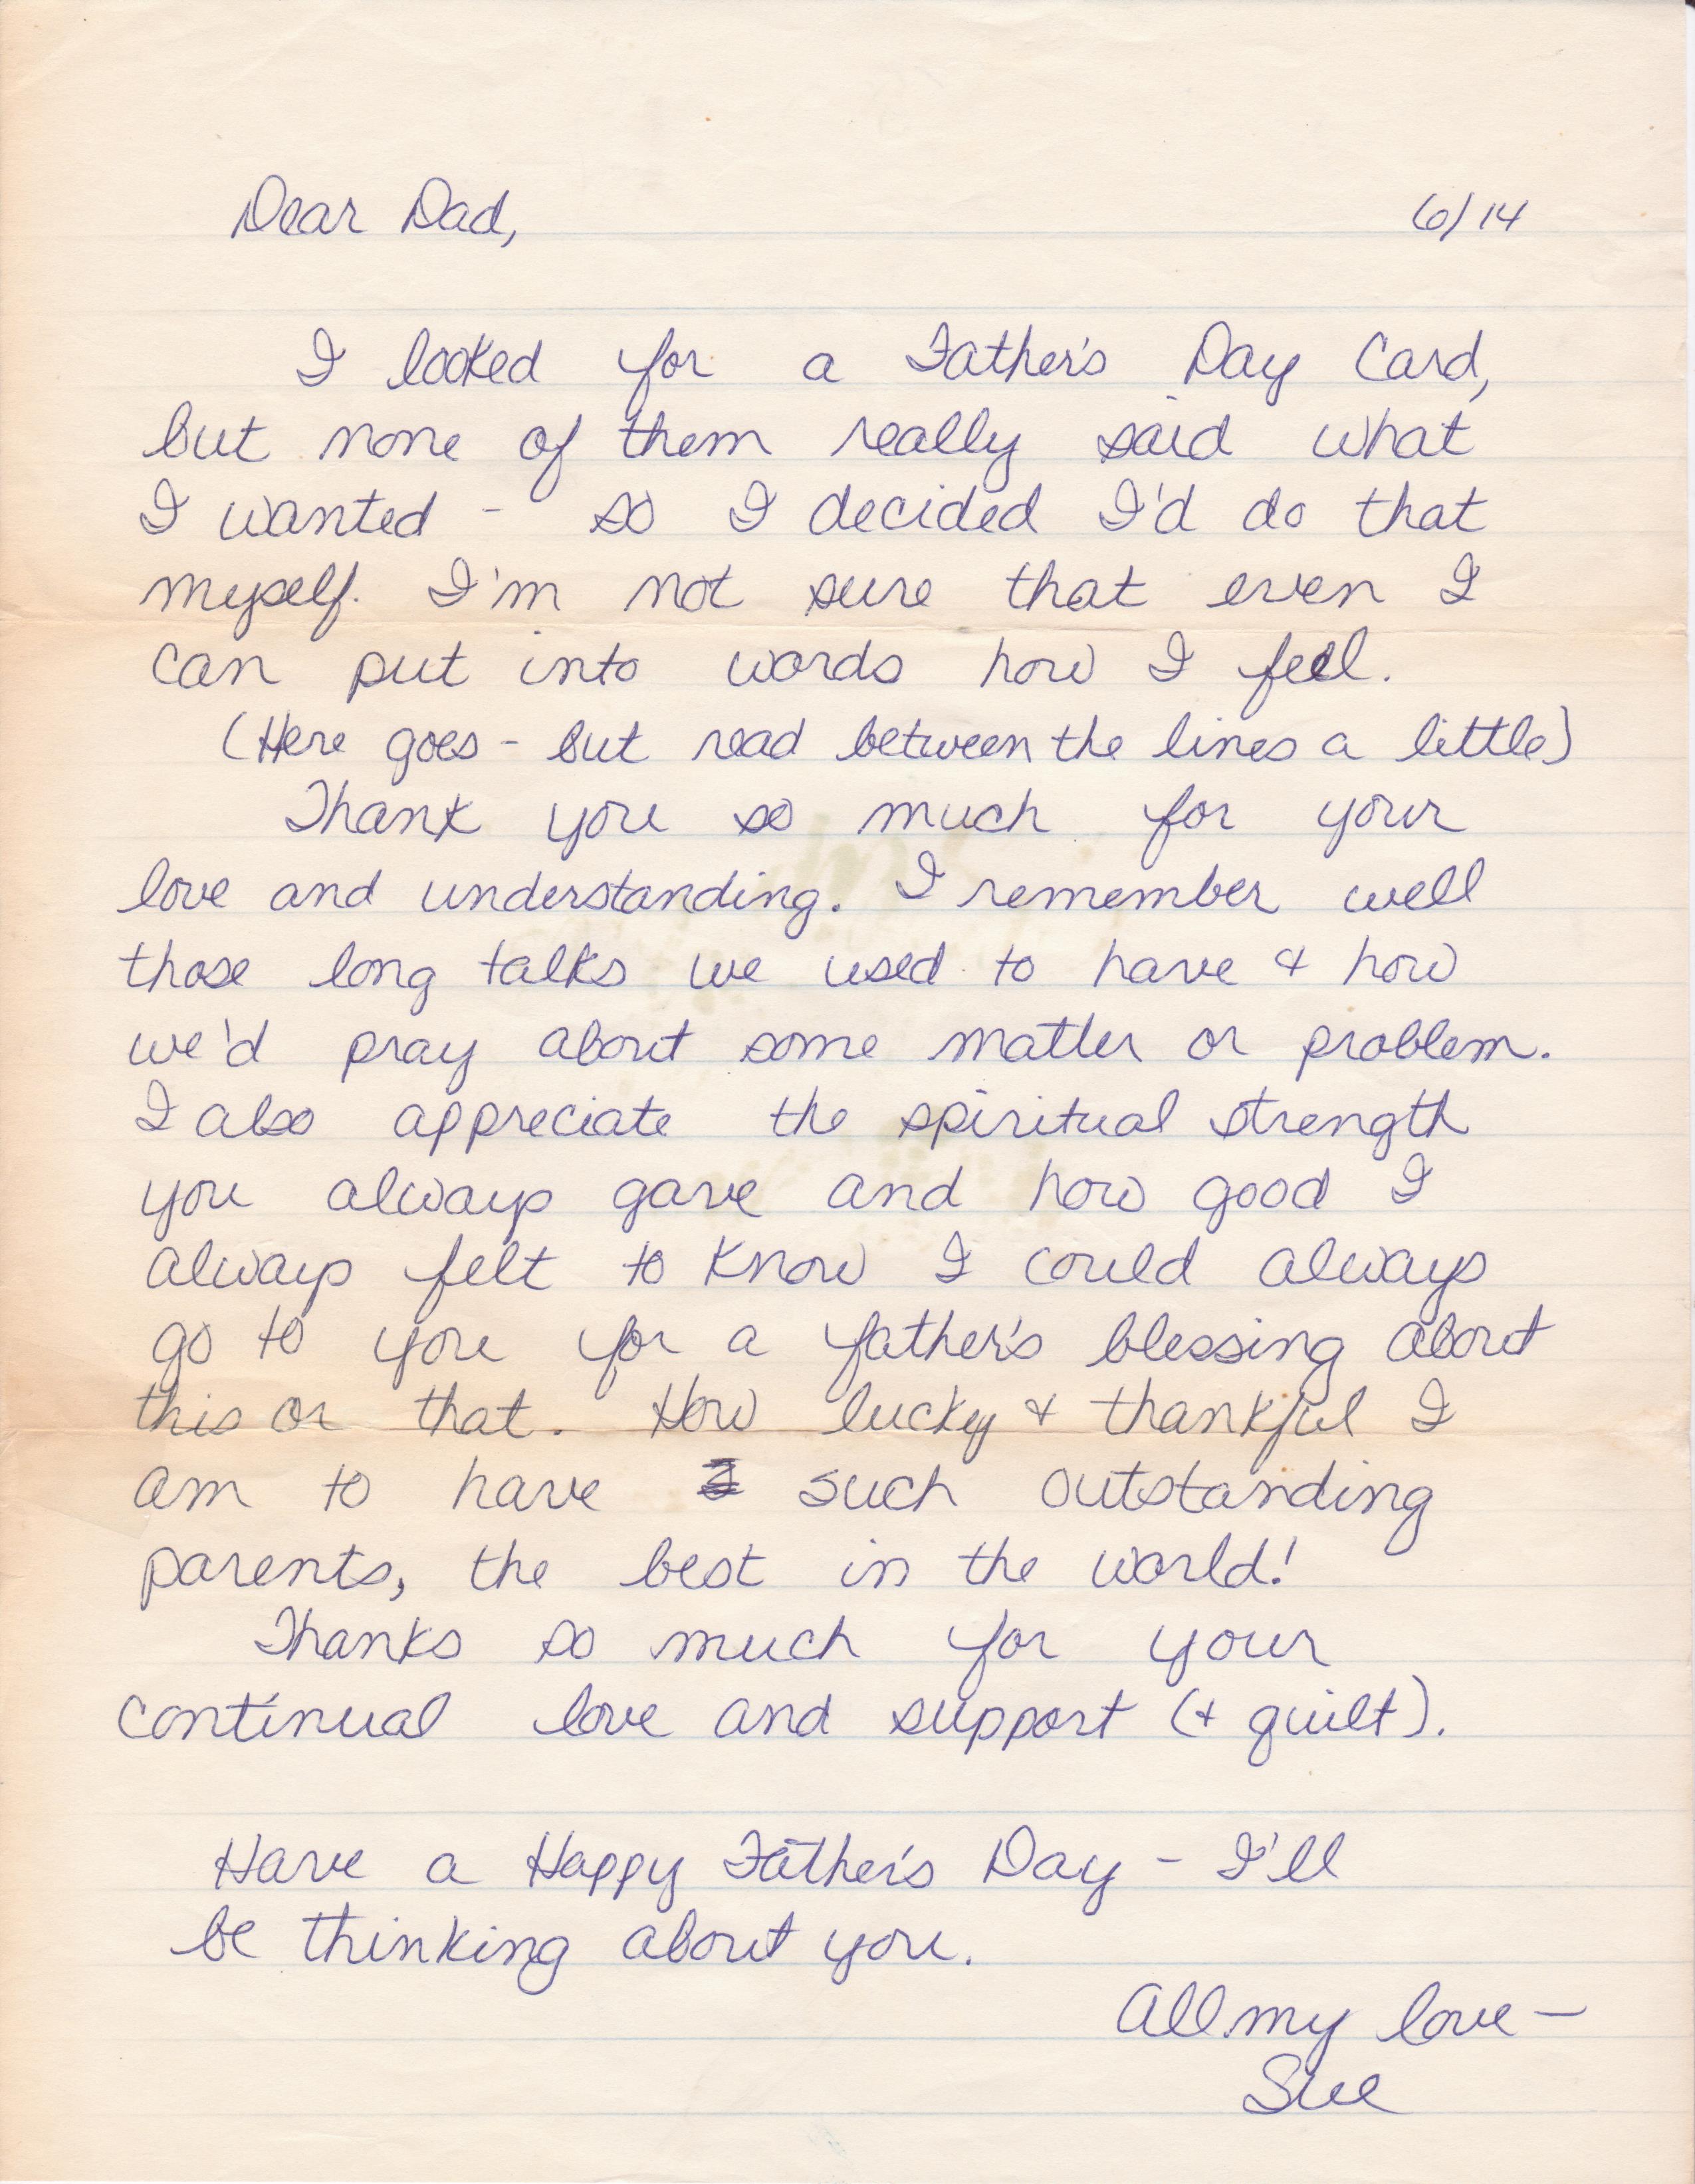 Dear Dad, 6/14
I looked for a Father's Day Card,
but none of them really said what
I wanted - so I decided I'd do that
myself. I'm not sure that even I
can put into words how I feel.
(Here goes - but read between the lines a little)
Thank you so much for your
love and understanding. I remember well
those long talks we used to have & how
we'd pray about some matter or problem.
I also appreciate the spiritual strength
you always gave and how good I
always felt to know I could always
go to you for a father's blessing about
this or that. How lucky & thankful I
am to have such outstanding
parents, the best in the world!
Thanks so much for your
continual love and support (& quilt).
Have a Happy Father's Day - I'll
be thinking about you.
All my love -
Sue